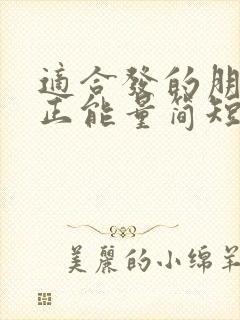 適合發的朋
正能量简短
美麗的小绵羊